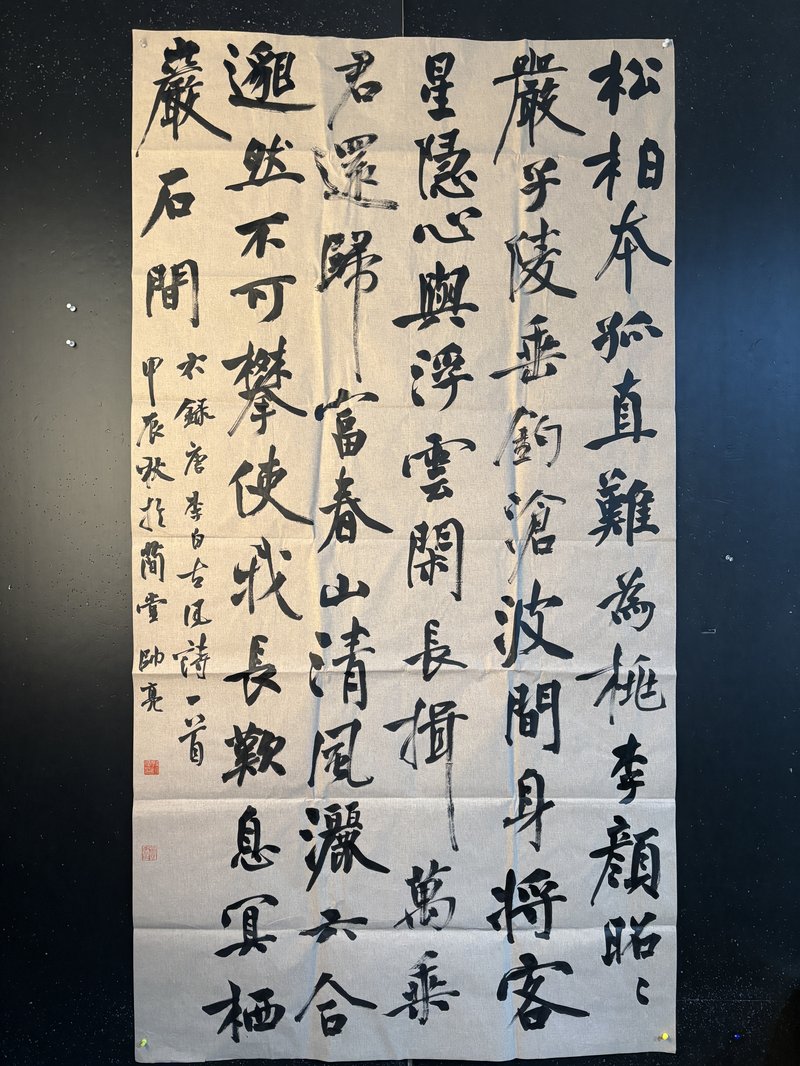 松柏本孤直難為桃李顏昭〻
嚴子陵垂釣滄波間身將客
星隱心與浮雲閑長揖萬乘
君還歸富春山清風灑六合
邈然不可攀使我長歎息冥栖
巖石間
右錄唐李白古風詩一首
甲辰秋於蘭堂帥亮